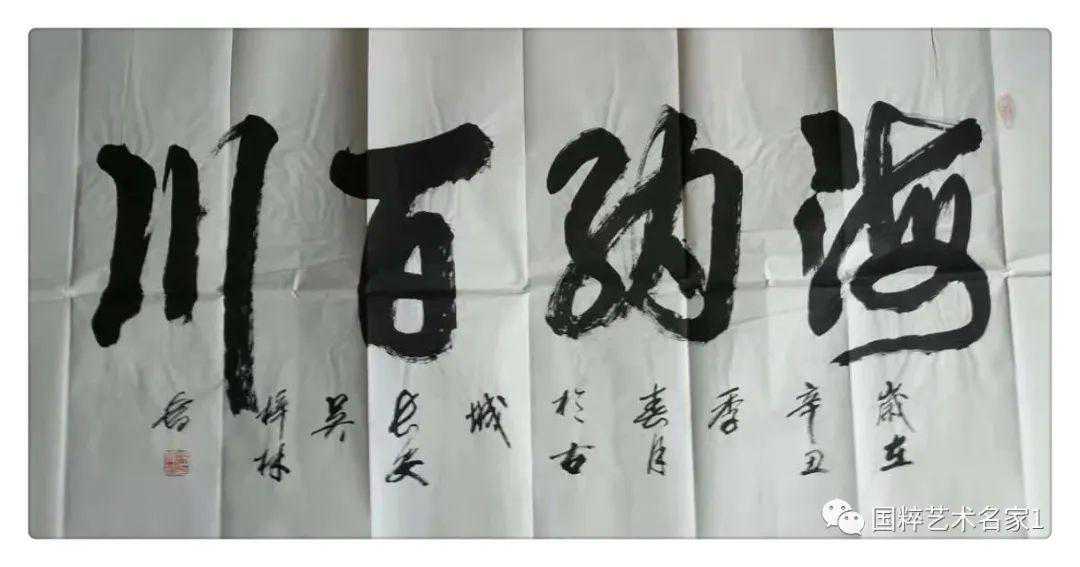 海纳百川
歲在辛丑季春月於古城长安吴梓林书
国粹艺术名家1